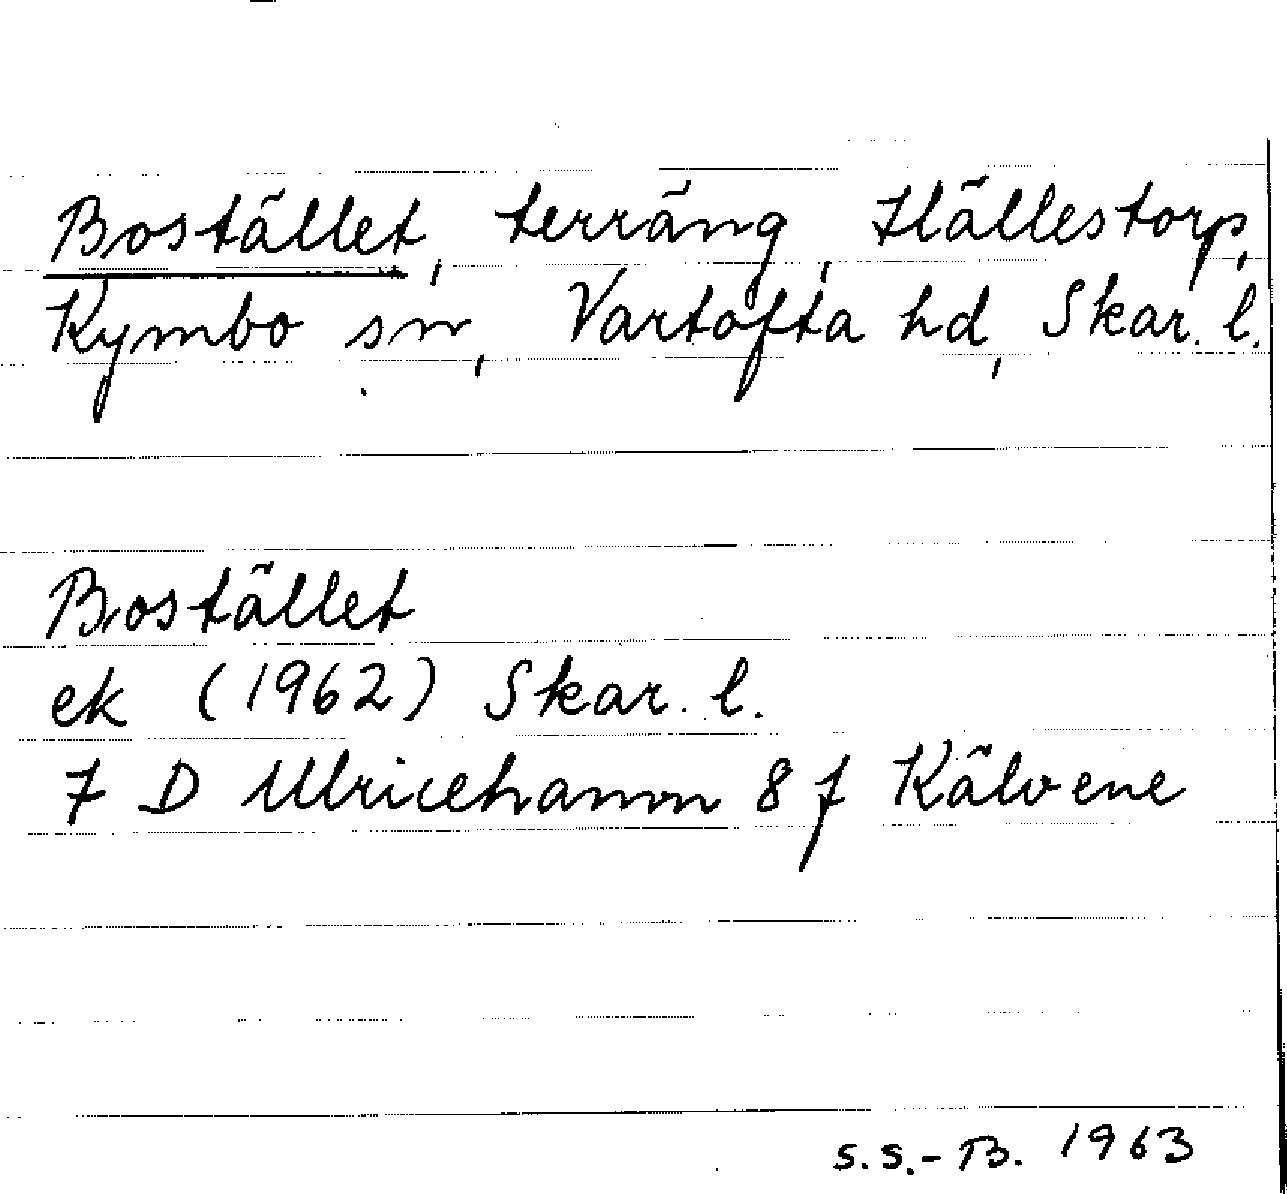 Bostället, terräng, Hällestorp,
Kymbo sn, Vartofta hd, Skar. l.
Bostället
ek (1962) Skar. l.
7 D Ulricehamn 8 f Kälvene
S.S.-B. 1963